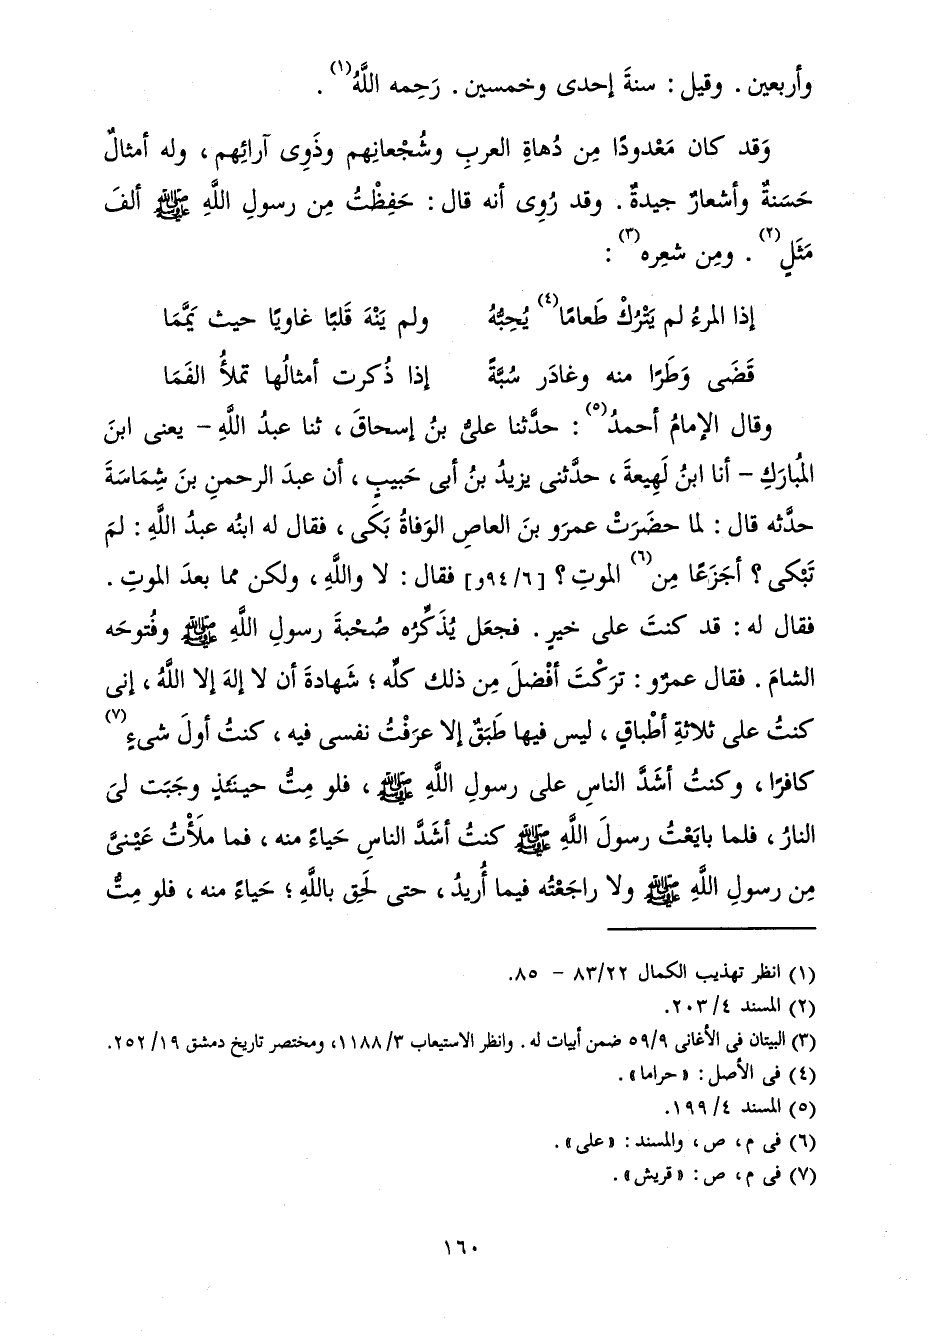 وأربعين . وقيل : سنةَ إحدى وخمسين . رَحِمه اللَّهُ(١) .
وَقد كان مَعْدودًا مِن دُهاةِ العربِ وشُجْعانِهم وذَوِى آرائِهم ، وله أمثالٌ
حَسَنةٌ وأشعارٌ جيدةٌ . وقد رُوِى أنه قال : حَفِظْتُ مِن رسولِ اللَّهِ ﷺ ألفَ
مَثَلٍ(٢) . ومِن شعرِه(٣) :
إذا المرءُ لم يَتْرُكْ طَعامًا(٤) يُحِبُّهُ ولم يَنْهَ قَلبًا غاويًا حيث يَمَّمَا
قَضَى وَطَرًا منه وغادَر سُبَّةً إذا ذُكرت أمثالُها تملأُ الفَمَا
وقال الإمامُ أحمدُ(٥) : حدَّثنا علىُّ بنُ إسحاقَ ، ثنا عبدُ اللَّهِ – يعنى ابنَ
المُبارَكِ – أنا ابنُ لَهِيعةَ ، حدَّثنى يزيدُ بنُ أبى حَبيبٍ ، أن عبدَ الرحمنِ بنَ شِمَاسَةَ
حدَّثه قال : لما حضَرَتْ عمرَو بنَ العاصِ الوَفاةُ بَكَى ، فقال له ابنُه عبدُ اللَّهِ : لمَ
تَبْكى ؟ أجَزَعًا مِن(٦) الموتِ ؟ [٩٤/٦و] فقال : لا واللَّهِ ، ولكن مما بعدَ الموتِ .
فقال له : قد كنتَ على خيرٍ . فجعَل يُذَكِّرُه صُحْبةَ رسولِ اللَّهِ ﷺ وفُتوحَه
الشامَ . فقال عمرٌو : تركْتَ أفْضلَ مِن ذلك كلِّه ؛ شَهادةَ أن لا إلهَ إلا اللَّهُ ، إنى
كنتُ على ثلاثةِ أطْباقٍ ، ليس فيها طَبَقٌ إلا عرَفْتُ نفسى فيه ، كنتُ أولَ شىءٍ(٧)
كافرًا ، وكنتُ أشَدَّ الناسِ على رسولِ اللَّهِ ﷺ ، فلو مِتُّ حينئذٍ وجَبَت لىَ
النارُ ، فلما بايَعْتُ رسولَ اللَّهِ ﷺ كنتُ أشَدَّ الناسِ حَياءً منه ، فما ملَأْتُ عَيْنىَّ
مِن رسولِ اللَّهِ ﷺ ولا راجَعْتُه فيما أُريدُ ، حتى لَحِق باللَّهِ ؛ حَياءً منه ، فلو مِتُّ
(١) انظر تهذيب الكمال ٨٣/٢٢ – ٨٥.
(٢) المسند ٢٠٣/٤.
(٣) البيتان فى الأغانى ٥٩/٩ ضمن أبيات له . وانظر الاستيعاب ١١٨٨/٣، ومختصر تاريخ دمشق ٢٥٢/١٩.
(٤) فى الأصل : « حراما » .
(٥) المسند ١٩٩/٤.
(٦) فى م ، ص ، والمسند : « على » .
(٧) فى م ، ص : « قريش » .
١٦٠